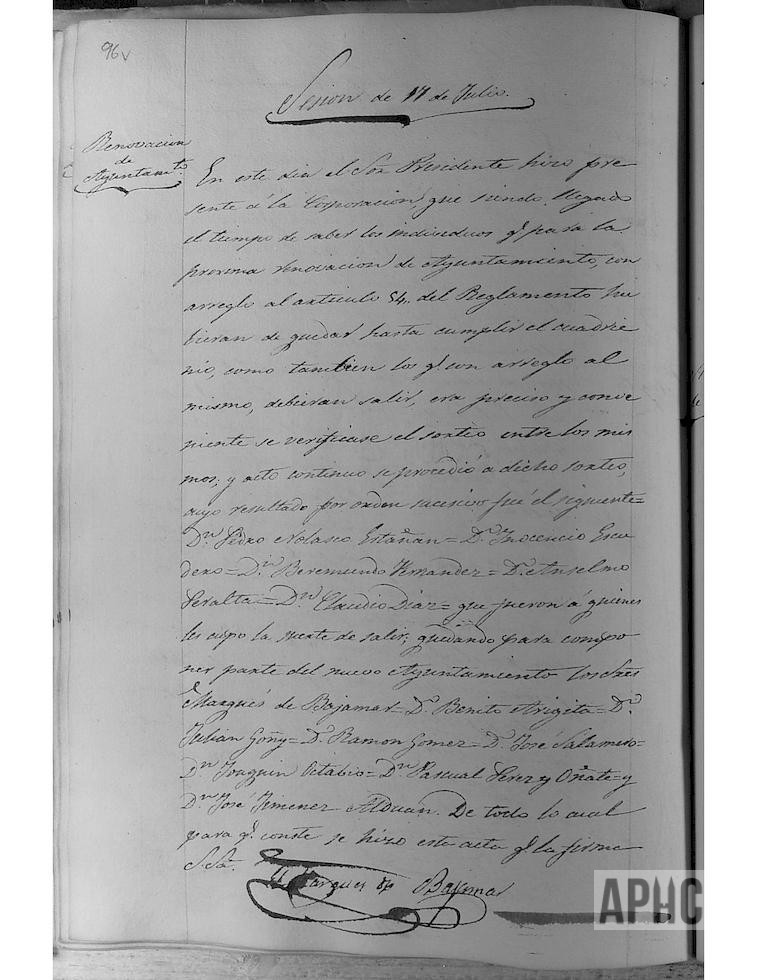 96v
Sesion de 11 de Julio.
Renovacion
de
Ayuntamto.
En este dia el Sor. Presidente hizo pre
sente á la Corporacion, que siendo llegado
el tiempo de saber los individuos q. para la
procsima renovacion de Ayuntamiento, con
arreglo al articulo 54. del Reglamento hu
bieran de quedar hasta cumplir el cuadrie
nio, como tambien los q. con arreglo al
mismo, debieran salir, era preciso y conve
niente se verificase el sorteo entre los mis
mos; y acto continuo se procedió a dicho sorteo,
cuyo resultado por orden sucesivo fué el siguiente=
Dn. Pedro Nolasco Estañan= Dn. Inocencio Escu
dero= Dn. Beremundo Hernandez= Dn. Anselmo
Peralta= Dn. Claudio Diaz= que fueron á quienes
les cupo la suerte de salir; quedando para compo
ner parte del nuevo Ayuntamiento los Sres
Marqués de Bajamar= Dn. Benito Arigita= Dn.
Julian Goñy= Dn. Ramon Gomez= Dn. José Salamero=
Dn. Joaquin Octabio= Dn. Pascual Perez y Oñate= y
Dn. José Jimenez Alduán. De todo lo cual
para q. conste se hizo este acta q. la firma
S. Sa.
El Marques de Bajamar
APHC